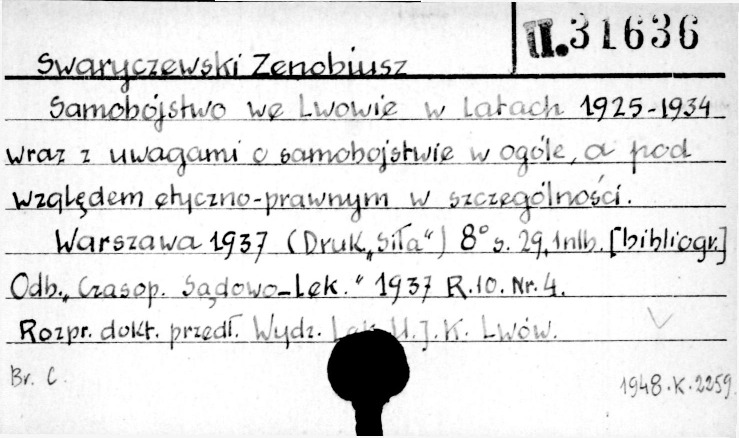 II.31636
Swaryczewski Zenobiusz
Samobójstwo we Lwowie w latach 1925-1934
wraz z uwagami o samobójstwie w ogóle, a pod
względem etyczno-prawnym w szczególności.
Warszawa 1937 (Druk „Siła") 8° s. 29, 1nlb. [bibliogr.]
Odb. „Czasop. Sądowo-Lek." 1937 R.10. Nr. 4.
Rozpr. dokt. przedł. Wydz. Lek. U.J.K. Lwów.
Br. C. 1948.K.2259.